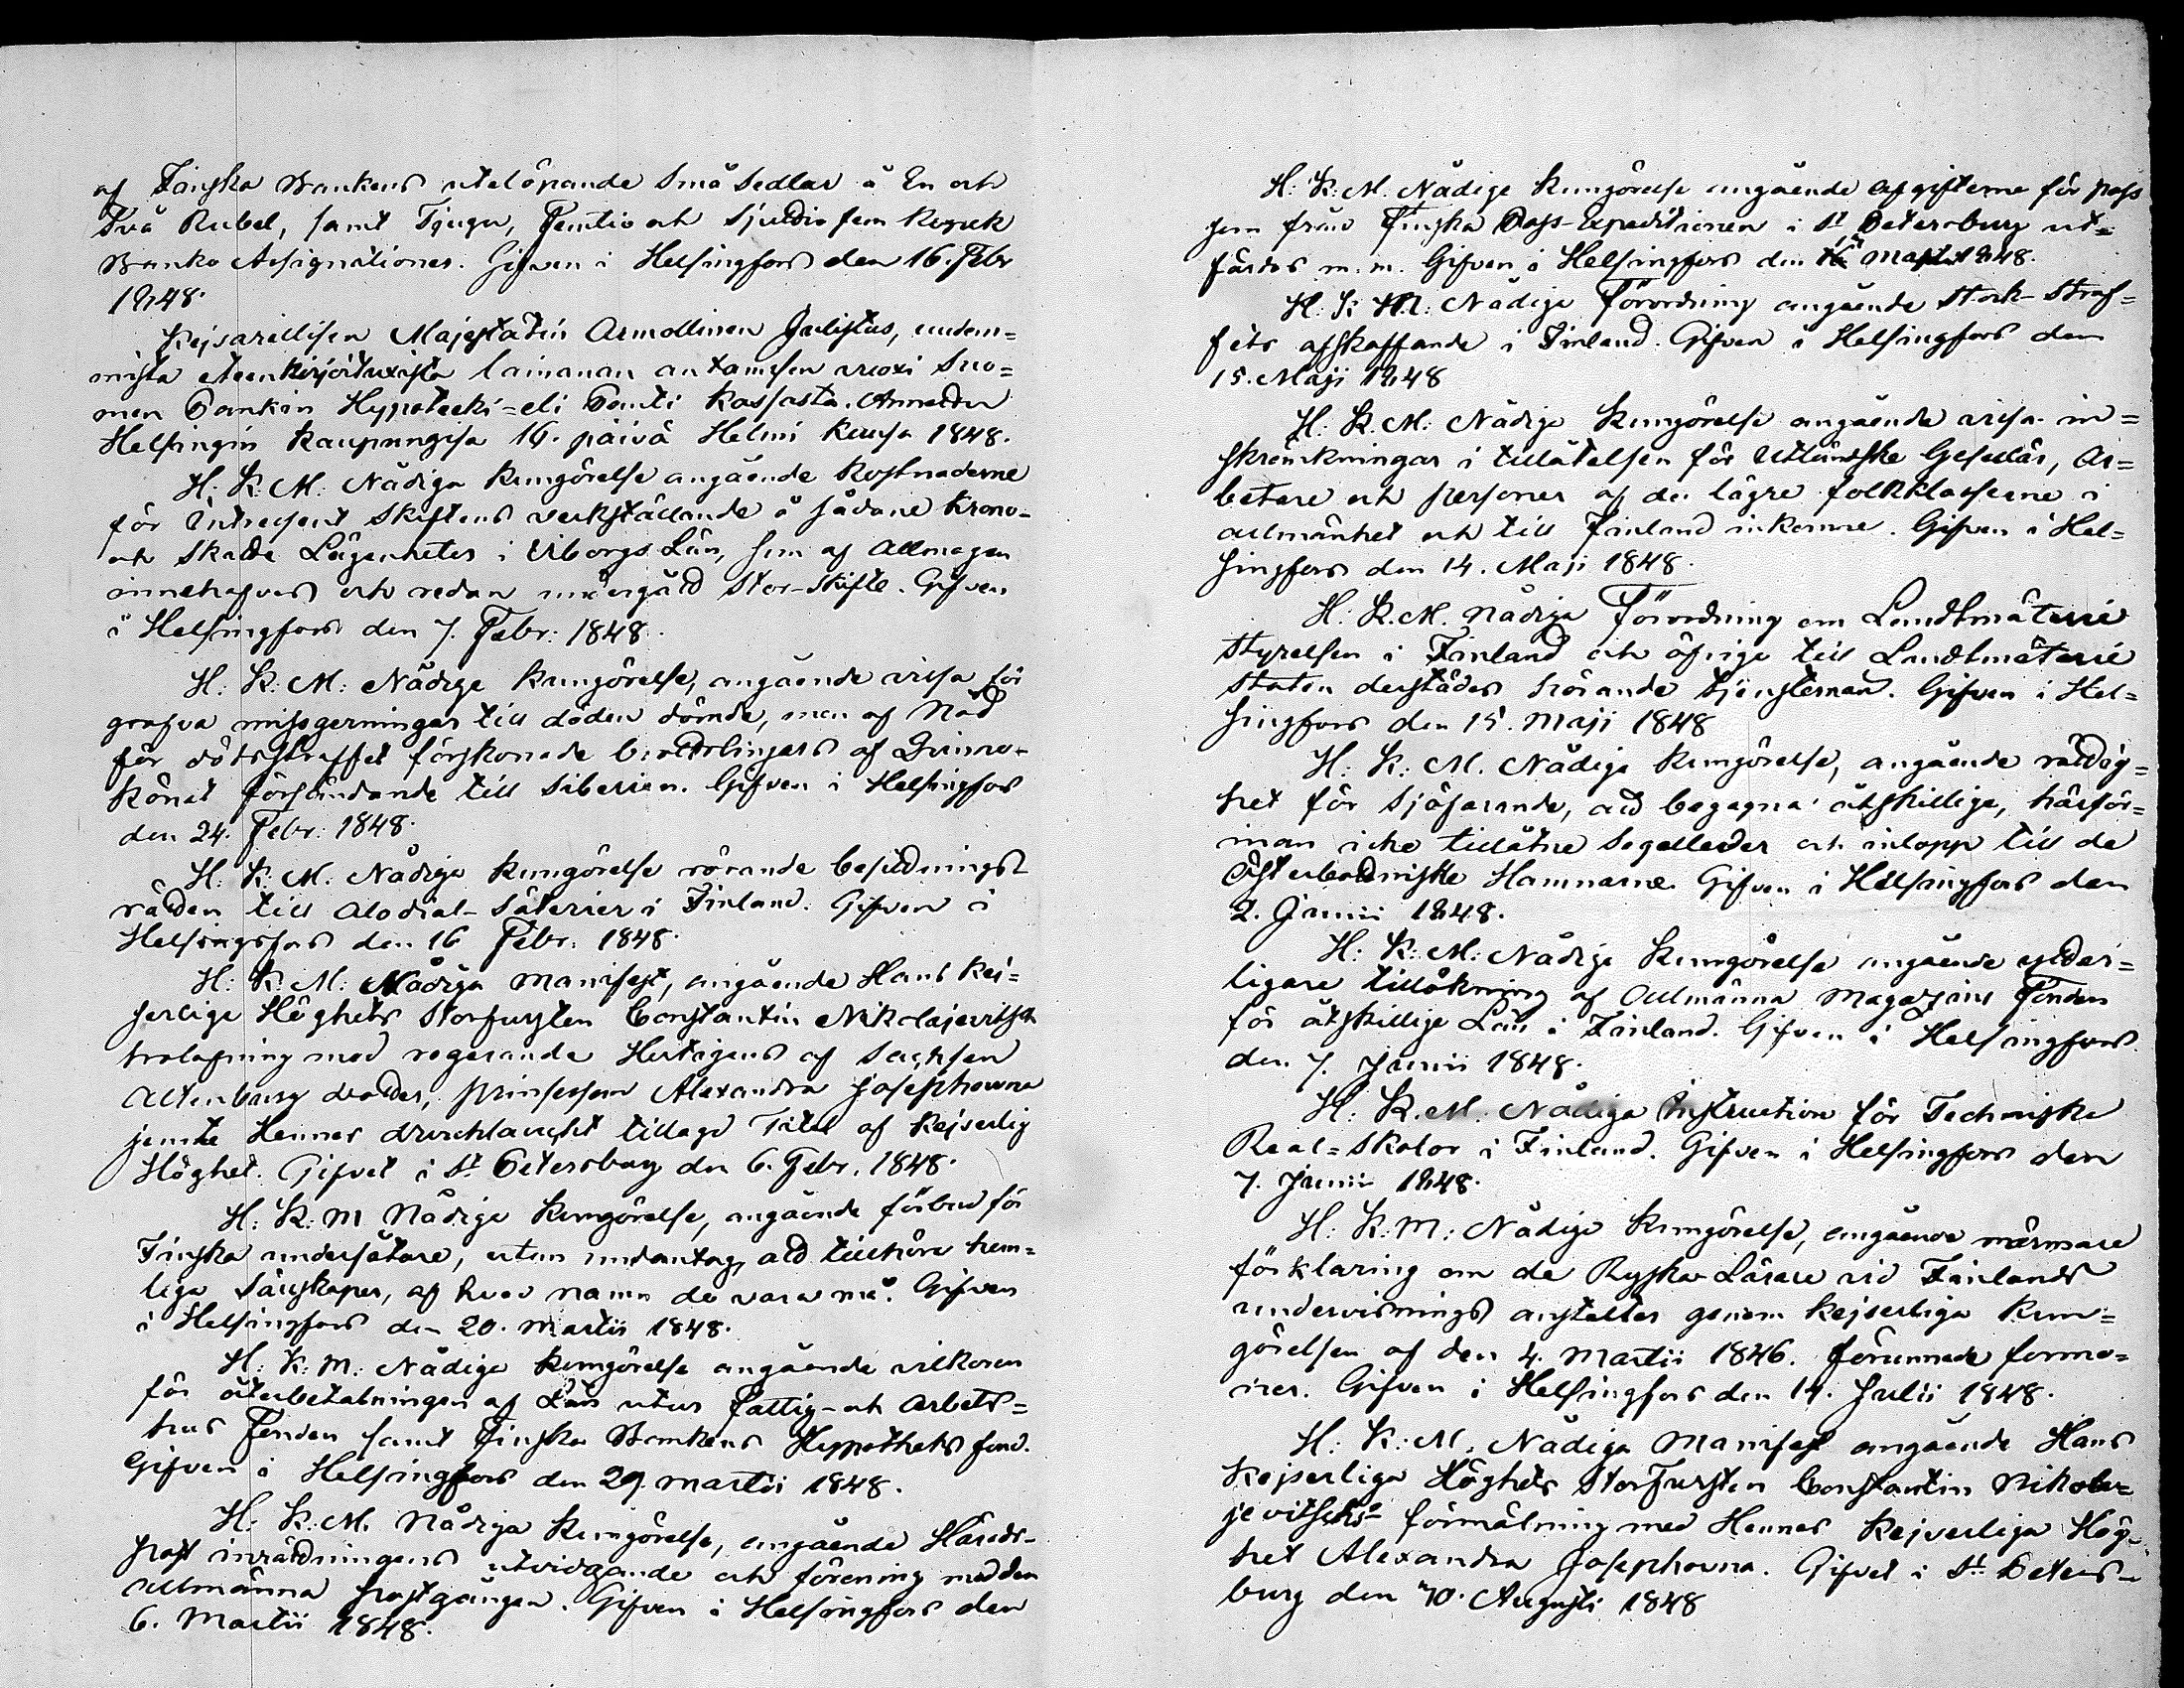 af Finska Bankens utelöpande Små Sedlar à En och
Två Rubel, samt Tjugu, Femtio och Sjuttio fem Kopek
Banko Assignationer. Gifven i Helsingfors den 16. Febr
1848.
Kejsarillisen Majestätin Armollinen Julistus, uudem=
mista eteenkirjoituxista lainanan antamisen vuoxi Suo=
men Pankin Hypoteeki=eli Panti Kassasta. Annettu
Helsingin Kaupungisa 16. päivä Helmi Kuusa 1848.
H: K: M: Nådiga Kungörelse angående Kostnaderne
för Intressent Skiftens verkställande å sådane Krono-
och Skatte Lägenheter i Viborgs Län, som af Allmogen
innehafvas och redan undergått Stor-Skifte. Gifven
i Helsingfors den 7. Febr: 1848.
H: K: M: Nådige Kungörelse, angående vissa för
grofva missgerningar till döden dömde, men af Nåd
för dödsstraffet förskonade brottslingars af Qvinno-
könet försändande till Siberien. Gifven i Helsingfors
den 24. Febr: 1848.
H: K: M. Nådige Kungörelse rörande besuttnings
rätten till Alodial-Säterier i Finland. Gifven i
Helsingsfors den 16 Febr: 1848.
H: K: M: Nådiga Manifest, angående Hans Kej=
serlige Höghets Storfursten Constantin Nikolajevitsch
trolofning med regerande Hertigens af Sachsen
Altenburg dotter, Prinsessan Alexandra Josephowna
jemte Hennes durchlaucht tillagd Titel af Kejserlig
Höghet. Gifvet i St. Petersburg den 6. Febr. 1848.
H: K: M Nådige Kungörelse, angående förbud för
Finska undersåtare, utan undantag, att tillhöra hem=
liga Sällskaper, af hvad namn de vara må. Gifven
i Helsingfors den 20. Martii 1848.
H: K: M: Nådige Kungörelse angående vilkoren
för återbetalningen af Lån utur Fattig-och Arbets=
hus Fonden samt Finska Bankens Hypotheks fond.
Gifven i Helsingfors den 29. Martii 1848.
H: K: M. Nådiga Kungörelse, angående Härads-
post inrättningens utvidgande och förening med den
allmänna postgången. Gifven i Helsingfors den
6. Martii 1848.
H: K: M. Nådige Kungörelse angående afgifterna för pass
som från Finska Pass-Expeditionen i St. Petersburg ut=
färdas m. m. Gifven i Helsingfors den 16 Martii 1848.
H: K: M: Nådige Förordning angående Stock-Straf=
fets afskaffande i Finland. Gifven i Helsingfors den
15. Maji 1848
H: K: M: Nådige Kungörelse angående vissa in=
skränkningar i tillåtelsen för Utländske Gesäller, Ar=
betare och personer af de lägre folkklasserne i
allmänhet att till Finland inkomma. Gifven i Hel=
singfors den 14. Maji 1848.
H: K: M. Nådiga Förordning om Landtmäterie
Styrelsen i Finland och öfrige till Landtmäterie
Staten derstädes hörande tjenstemän. Gifven i Hel=
singfors den 15. Maji 1848
H: K: M. Nådige Kungörelse, angående rättig=
het för Sjöfarande, att begagna åtskillige, härför=
innan icke tillåtne Segelleder och inlopp till de
Österbottniske Hamnarne. Gifven i Helsingfors den
2. Junii 1848.
H: K: M: Nådige Kungörelse angående ytter=
ligare tillökning af Allmänna Magazins Fonden
för åtskillige Län i Finland. Gifven i Helsingfors
den 7. Junii 1848.
H: K: M. Nådiga Instruction för Techniska
Real=Skolor i Finland. Gifven i Helsingfors den
7. Junii 1848.
H: K: M: Nådige Kungörelse, angående närmare
förklaring om de Ryska Lärare vid Finlands
undervisnings anstalter genom Kejserliga Kun=
görelsen af den 4. Martii 1846. förunnade förmå=
ner. Gifven i Helsingfors den 14. Julii 1848.
H: K: M. Nådiga Manifest angående Hans
Kejserliga Höghets Storfursten Constantin Nikola=
jevitschs förmälning med Hennes Kejserliga Hög-
het Alexandra Josephowna. Gifvet i St. Peters-
burg den 30. Augusti 1848